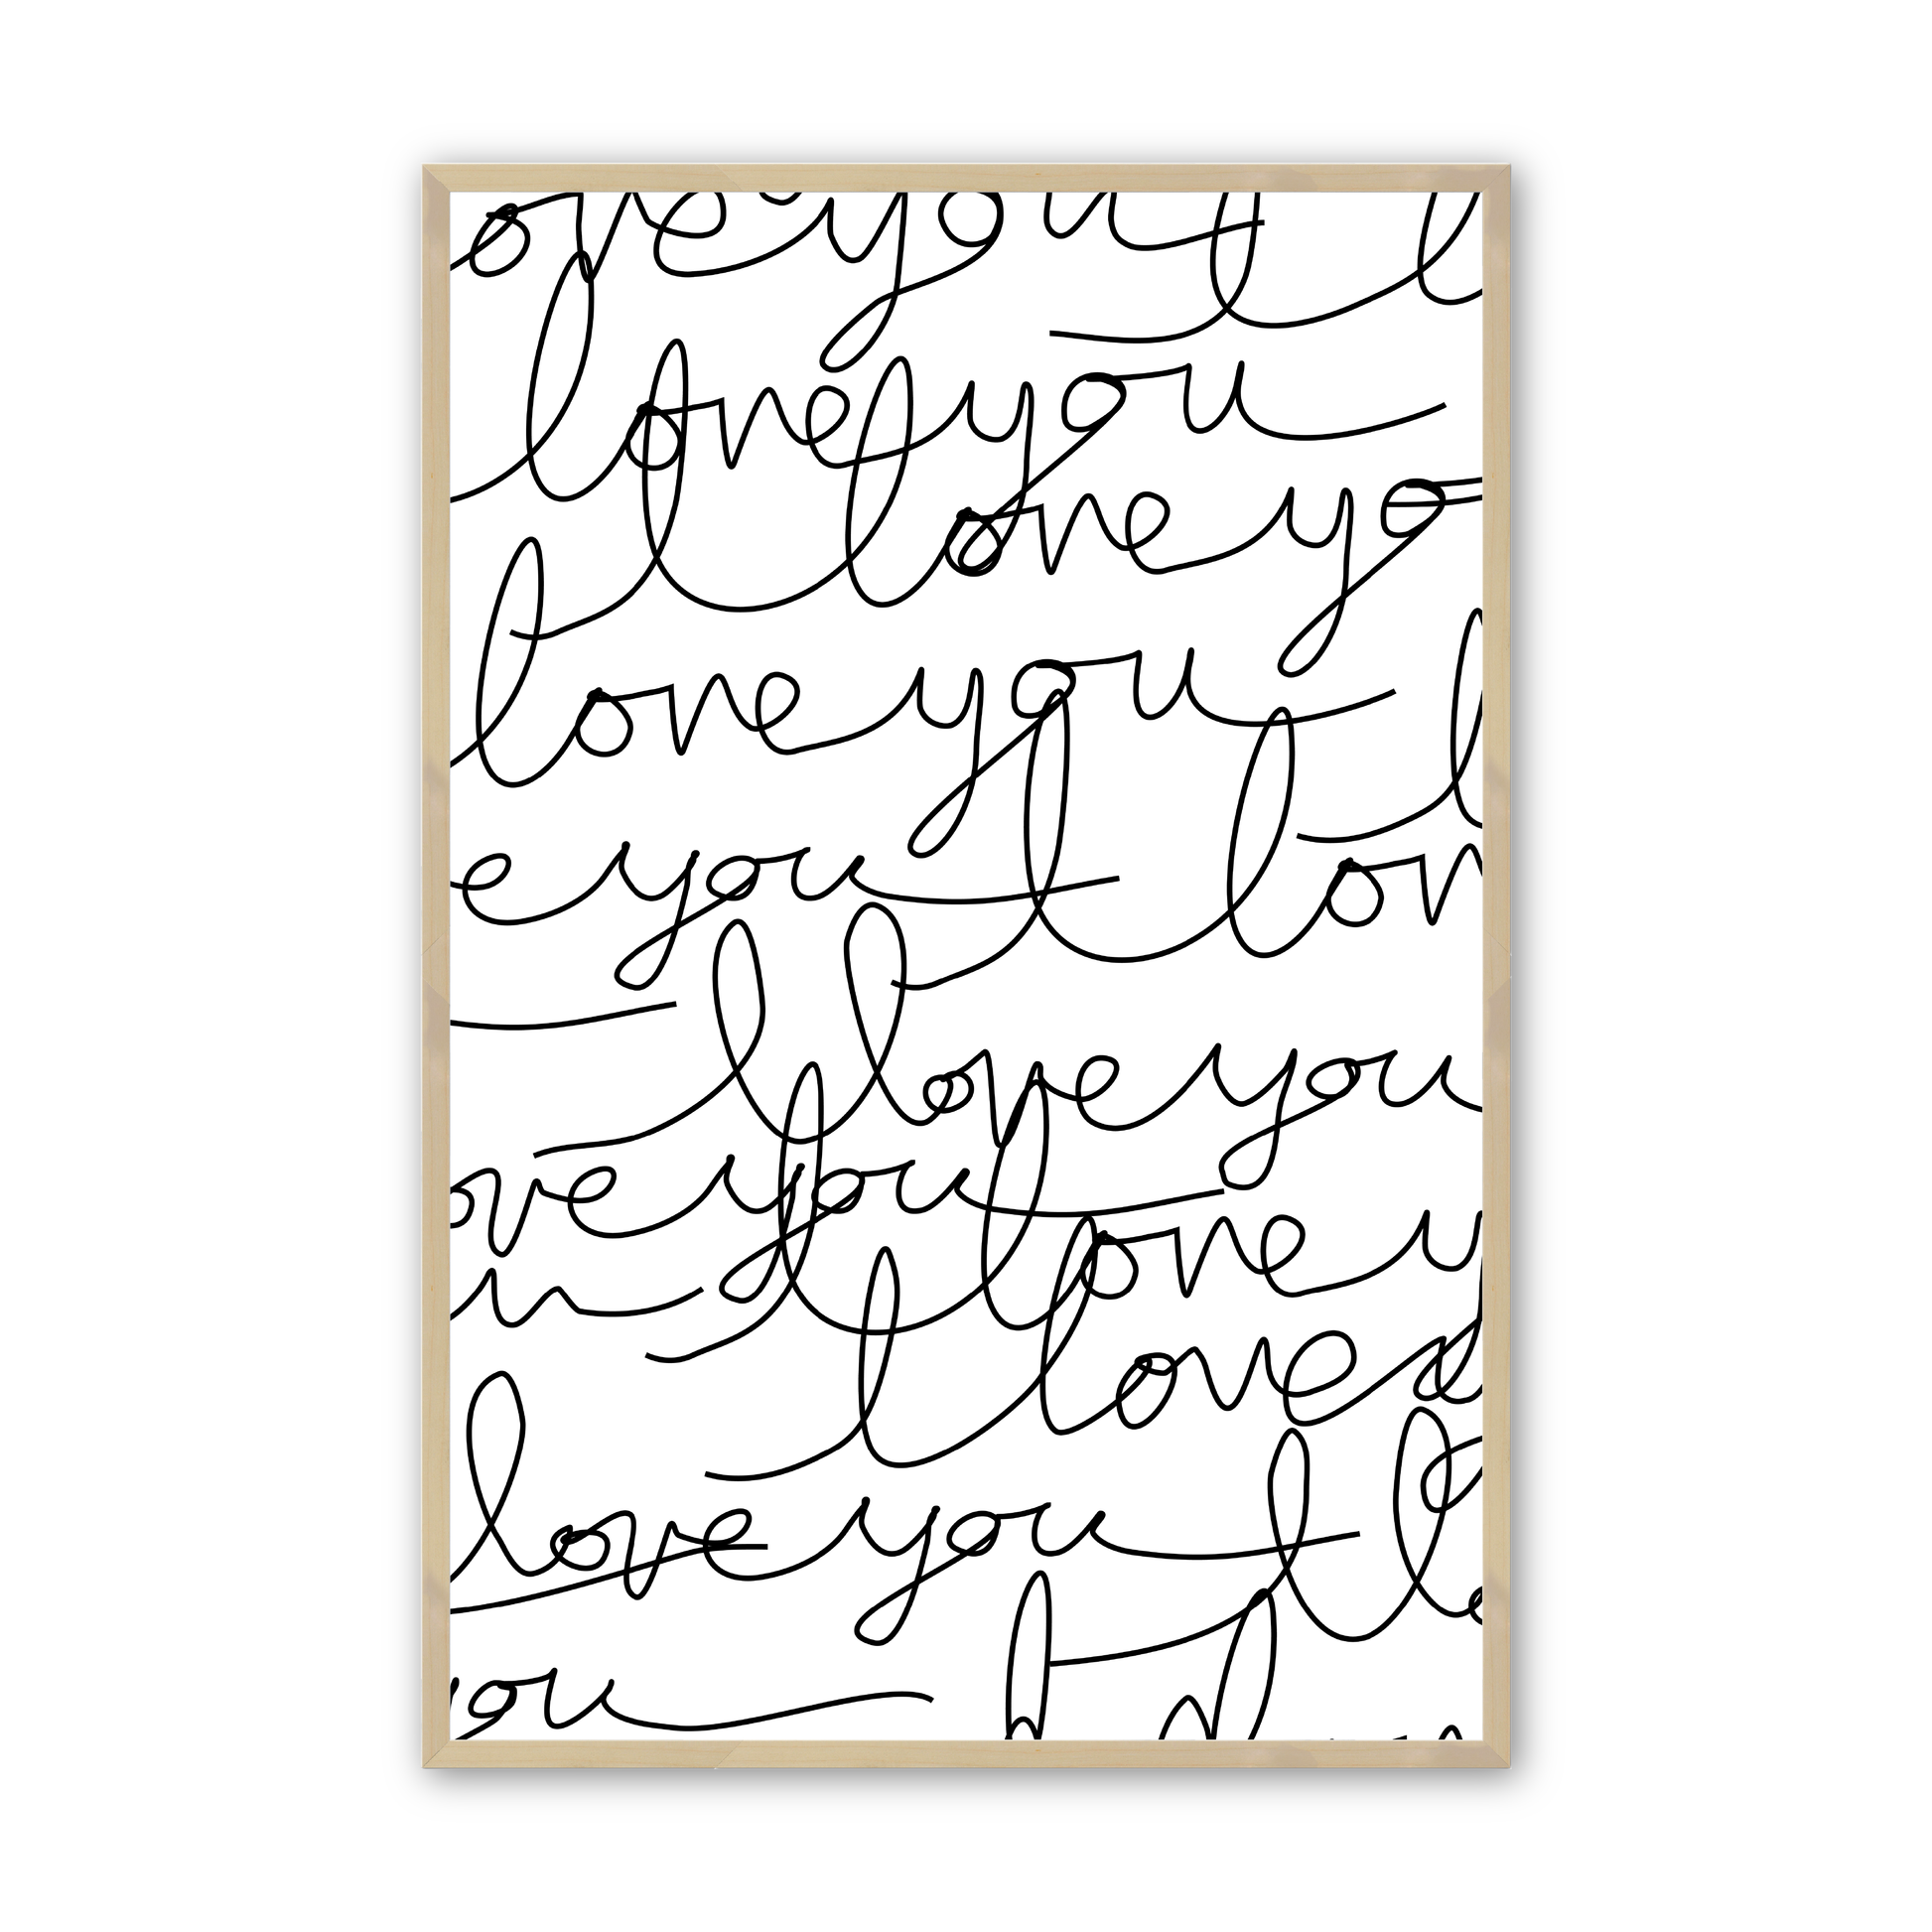 ove you I l
love you
I love yo
love you I
e you I lov
I love you
ove you I lo
u I love y
I love y
love you I l
you I